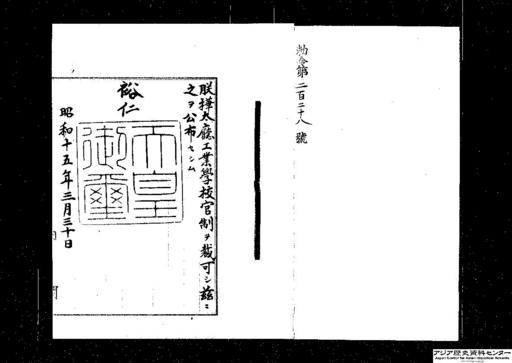 勅令第二百二十八號
朕樺太廳工業學校官制ヲ裁可シ茲ニ
之ヲ公布セシム
裕仁
天皇御璽
昭和十五年三月三十日
アジア歴史資料センター
Japan Center for Asian Historical Records